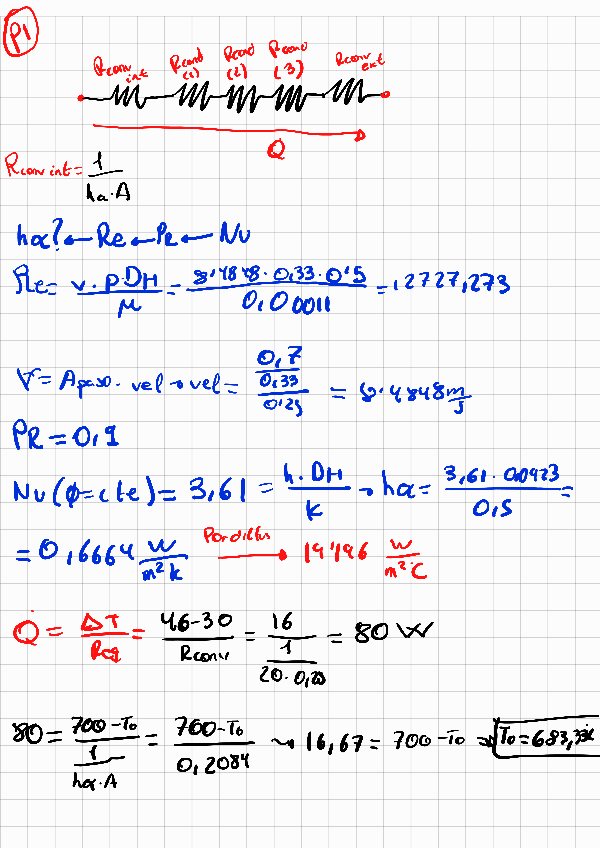 P1
Rconv int Rcond (1) Rcond (2) Rcond (3) Rconv ext
Q
Rconv int = 1 / (hα·A)
hα? ← Re ← Pr ← Nu
Re = v·ρ·DH / μ = 8,4848·0,33·0,5 / 0,00011 = 12727,273
V̇ = Apaso·vel → vel = (0,7 / 0,33) / 0,25 = 8,4848 m/s
PR = 0,9
Nu (φ=cte) = 3,61 = h·DH / k → hα = 3,61·0,0923 / 0,5 =
= 0,6664 W/m²k Por dittus → 19,196 W/m²C
Q̇ = ΔT / Req = 46-30 / Rconv = 16 / (1 / 20·0,25) = 80 W
80 = 700-To / (1 / hα·A) = 700-To / 0,2084 → 16,67 = 700-To ⇒ To = 683,33K